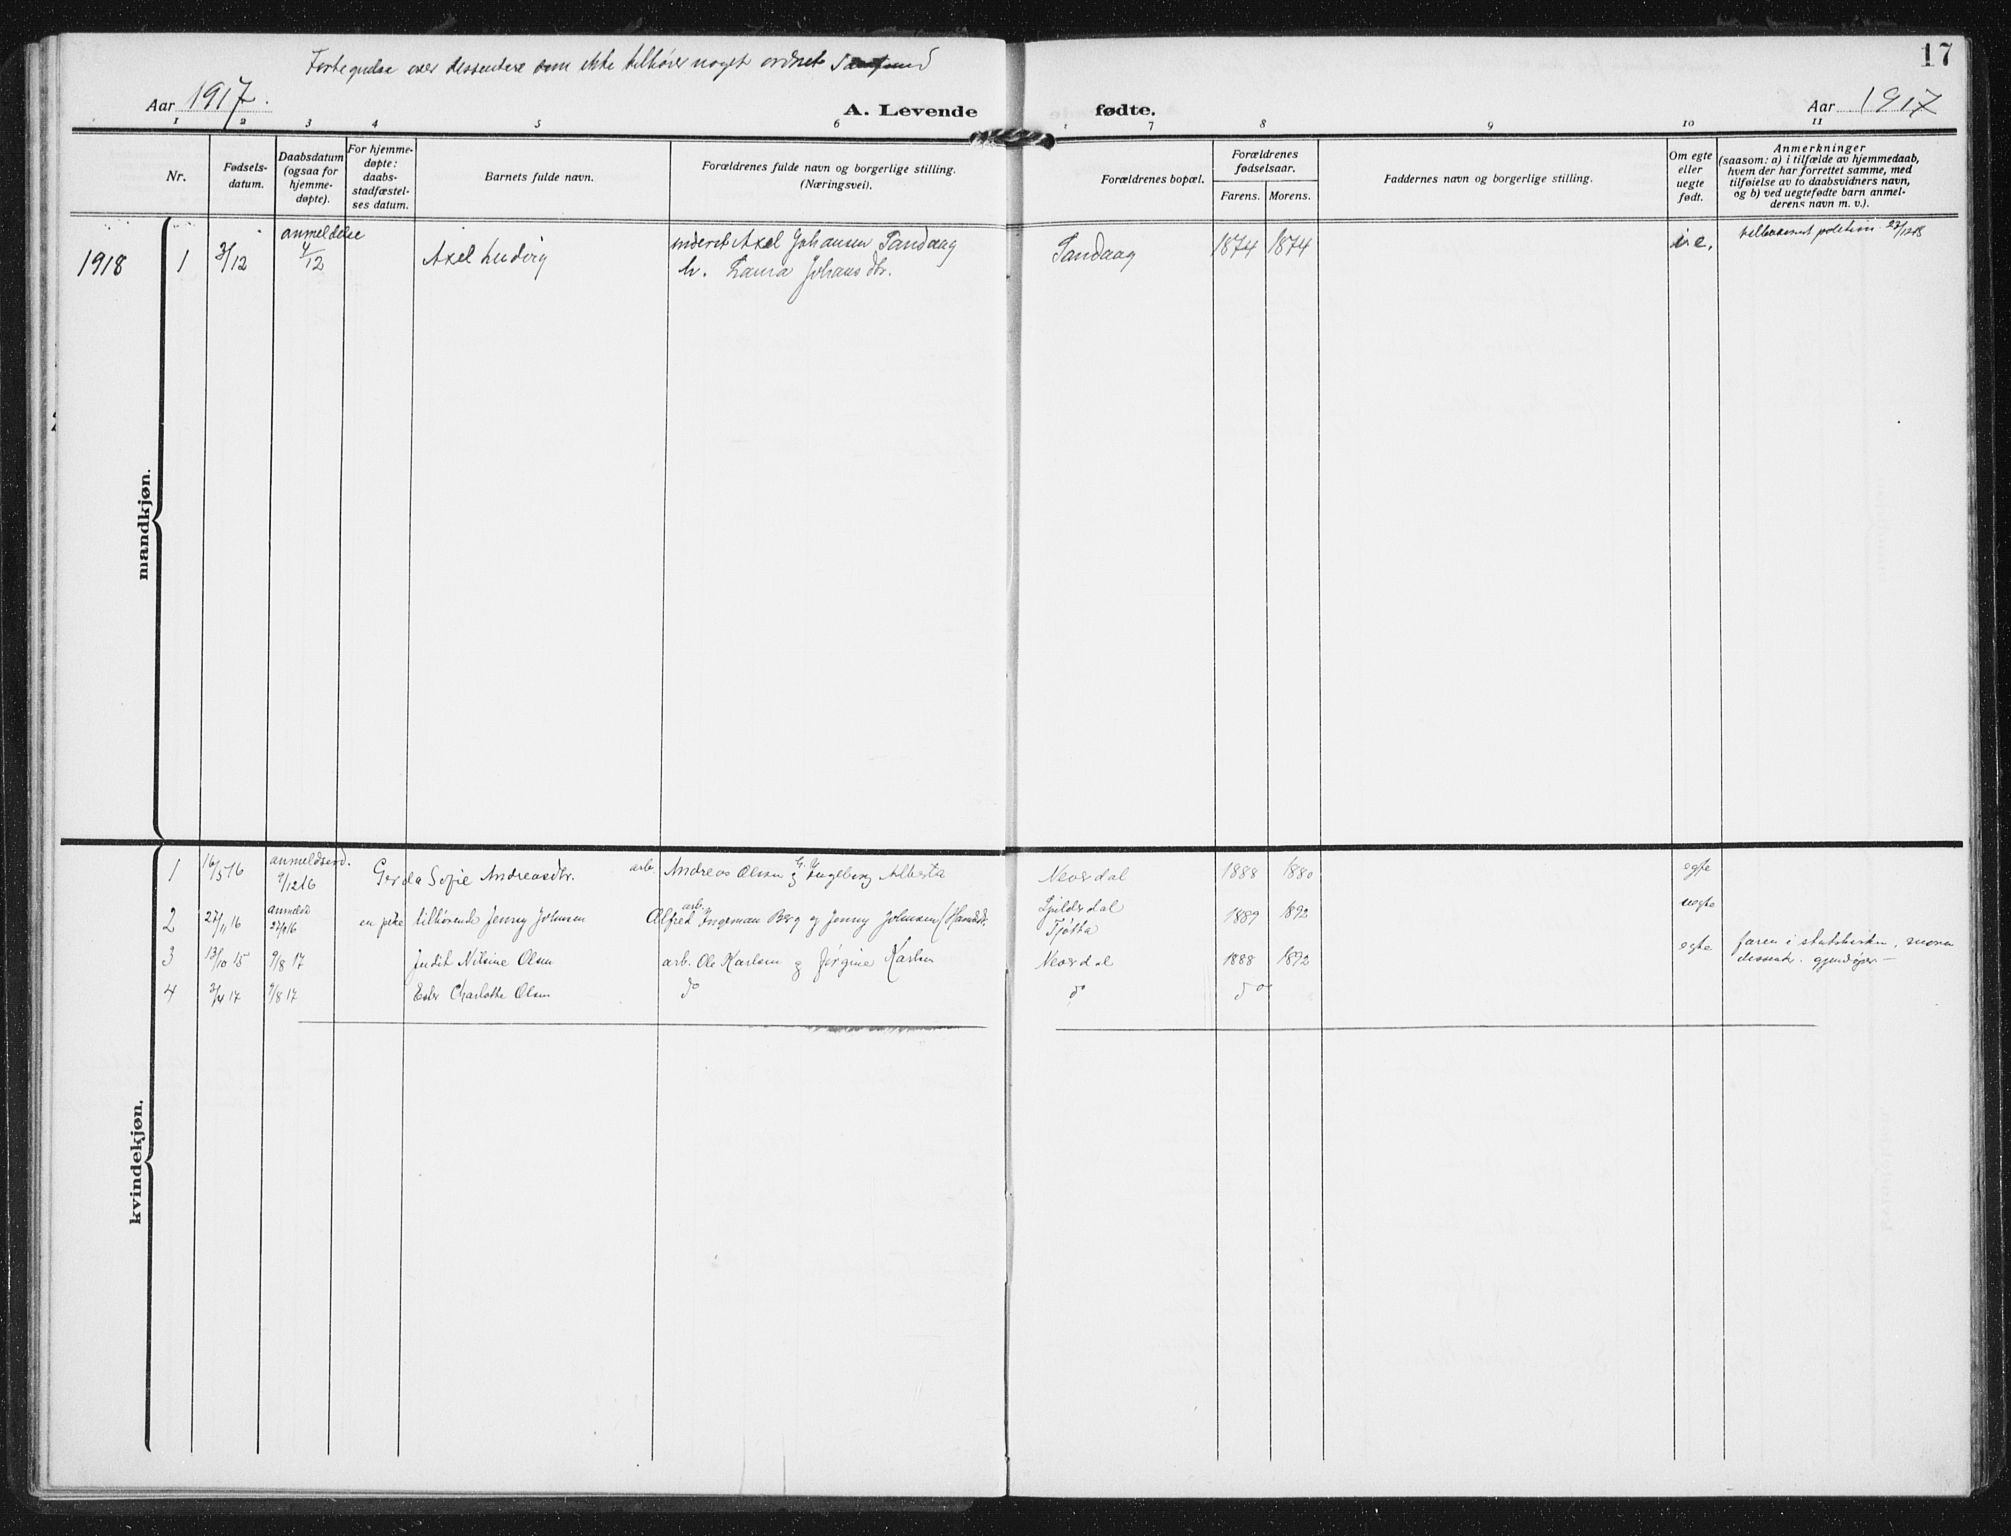 Fortegnelse over dissentere som ikke tilhører noget ordnet Samfund
17
Aar 1917.
A. Levende fødte.
Aar 1917
1 2 3 4 5 6 7 8 9 10 11
Nr.
Fødsels-
datum.
Daabsdatum
(ogsaa for
hjemme-
døpte).
For hjemme-
døpte:
daabs-
stadfæstel-
ses datum.
Barnets fulde navn.
Forældrenes fulde navn og borgerlige stilling.
(Næringsvei).
Forældrenes bopæl.
Forældrenes
fødselsaar.
Farens. Morens.
Faddernes navn og borgerlige stilling.
Om egte
eller
uegte
født.
Anmerkninger
(saasom: a) i tilfælde av hjemmedaab,
hvem der har forrettet samme, med
tilføielse av to daabsvidners navn,
og b) ved uegtefødte barn anmel-
derens navn m. v.).
mandkjøn.
anmeldelse
1918 1 3/12 4/12 Axel Ludvig inderst Axel Johansen Sandaag Sandaag 1874 1874
h. Laura Johansdtr.
kvindekjøn.
1 16/5 16 9/12 16 Gerda Sofie Andreasdtr. arb. Andreas Olsen og Ingeborg Alberta 1888 1880 egte
2 27/11 16 anmeld en pike tilhørende Jenny Johnsen arb. Alfred Ingeman Berg og Jenny Johnsen 1889 1892 uegte
Tjøtta
3 13/10 15 9/8 17 Judit Nilsine Olsen arb. Ole Karlsen og Jørgine Karlsen 1888 1892 egte faren i statskirken, moren
dissenter.
4 9/8 17 Ester Charlotte Olsen do do do